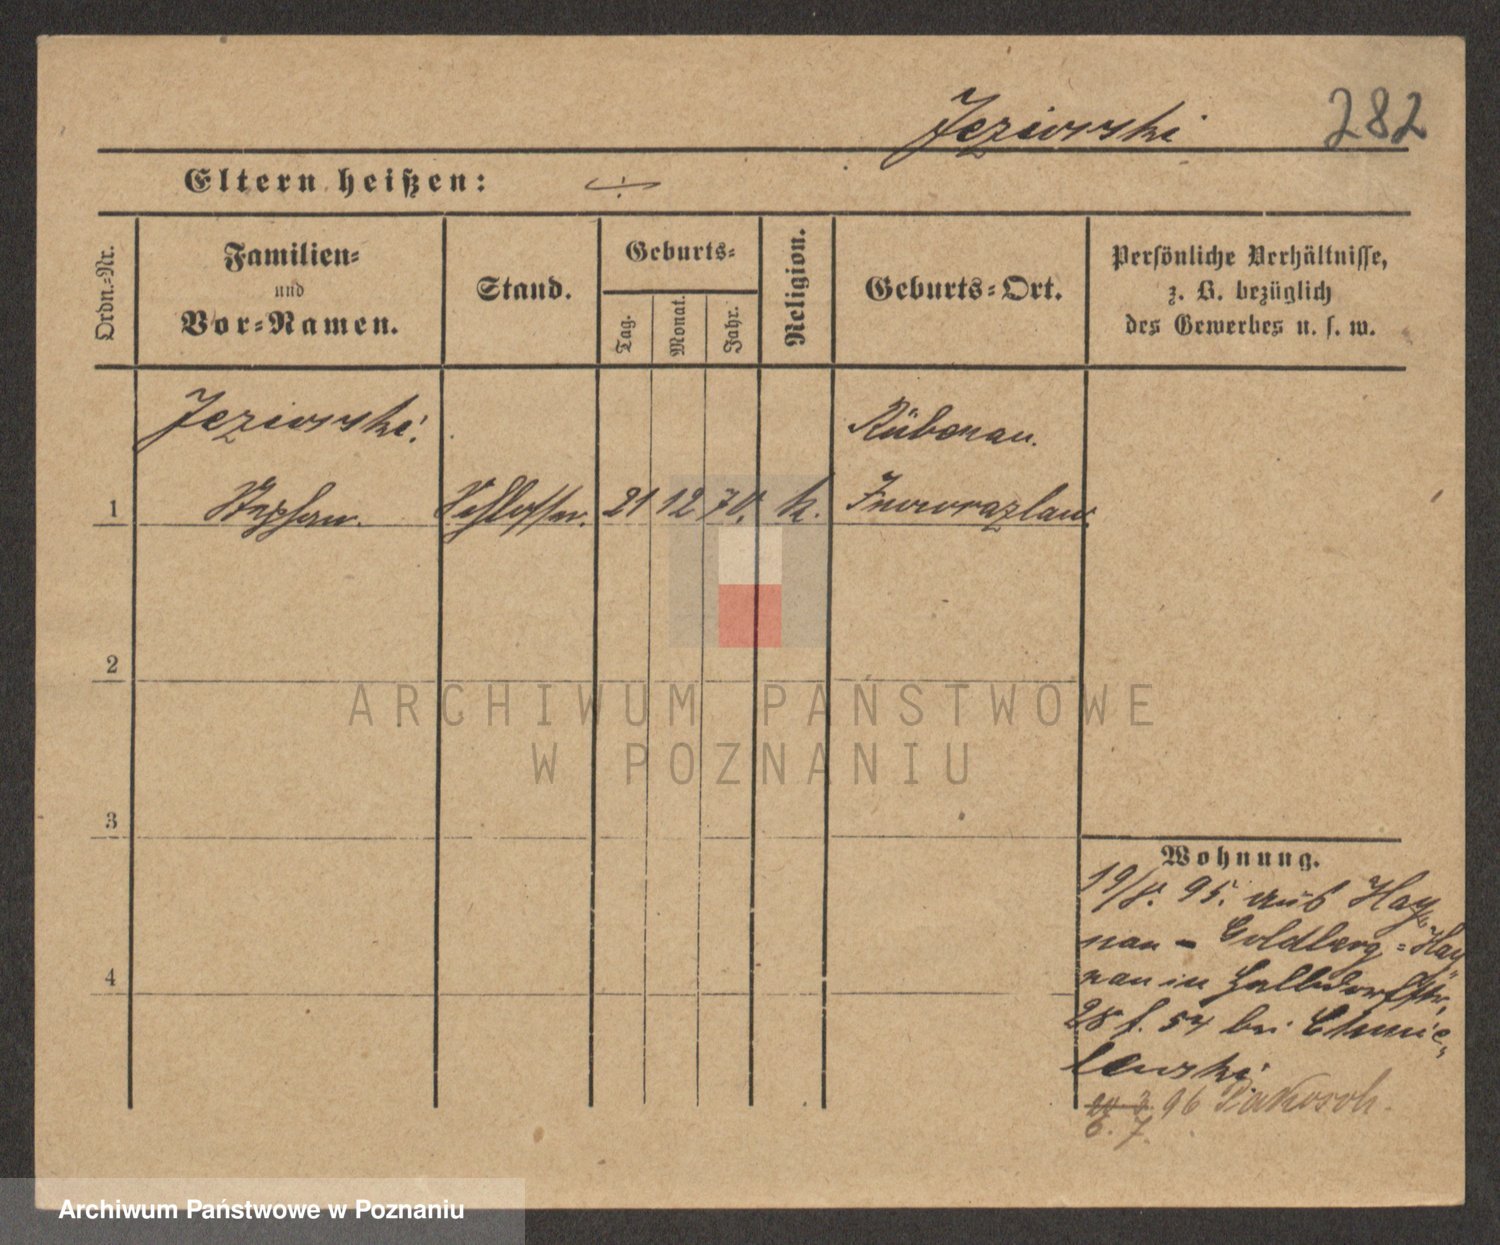 Jeziorski 282
Eltern heißen: ÷
Ordn.-Nr.
Familien-
und
Vor-Namen.
Stand.
Geburts-
Tag.
Monat.
Jahr.
Religion.
Geburts-Ort.
Persönliche Verhältnisse,
z. B. bezüglich
des Gewerbes u. s. w.
Jeziorski. Rübenau.
1 Stephan. Schlosser. 21 12 70. k. Inowrazlaw.
2
ARCHIWUM PAŃSTWOWE
W POZNANIU
3
Wohnung.
19/8. 95. aus Hay
nau - Goldberg = Hay
nau in Halbdorfstr,
28 f. 57 bei Chmie,
lewski
3. 96 Pakosch.
6. 7.
4
Archiwum Państwowe w Poznaniu